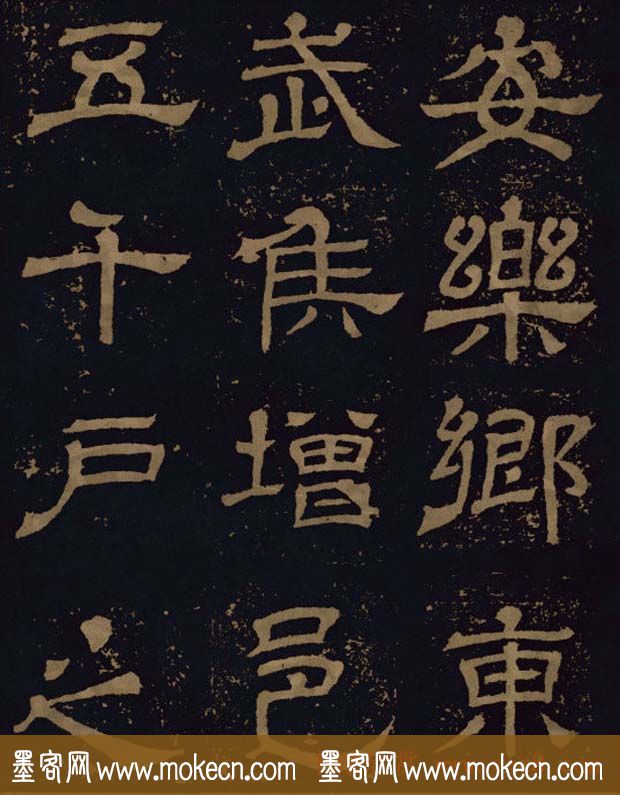 安樂鄉東
武侯增邑
五千戶之
墨客网 www.mokecn.com 墨客网 www.mokecn.com